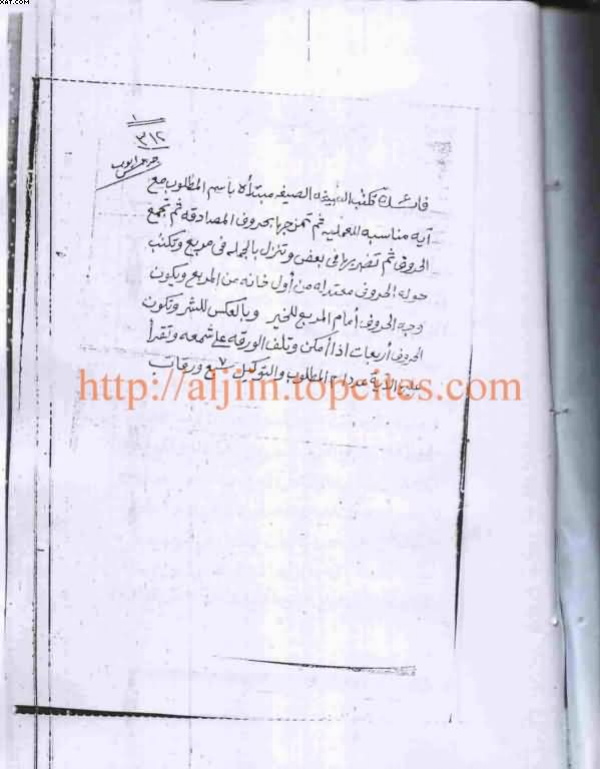 XAT.COM
١
٣١٢
تكتب الصيغه مبتدأه باسم المطلوب مع
آيه مناسبه للعمليه ثم تمزجها بحروف المصادقه ثم تجمع
الحروف ثم تضربها فى بعض وتنزل بالجمله فى مربع وتكتب
حوله الحروف من أول خانه من المربع ويكون
وجه الحروف أمام المربع للخير وبالعكس للشر وتكون
الحروف أربعات اذا أمكن وتلف الورقه على شمعه وتقرأ
الآية عدد المطلوب والتوكيل ٧ سبع ورقات
http://aljnn.topcites.com